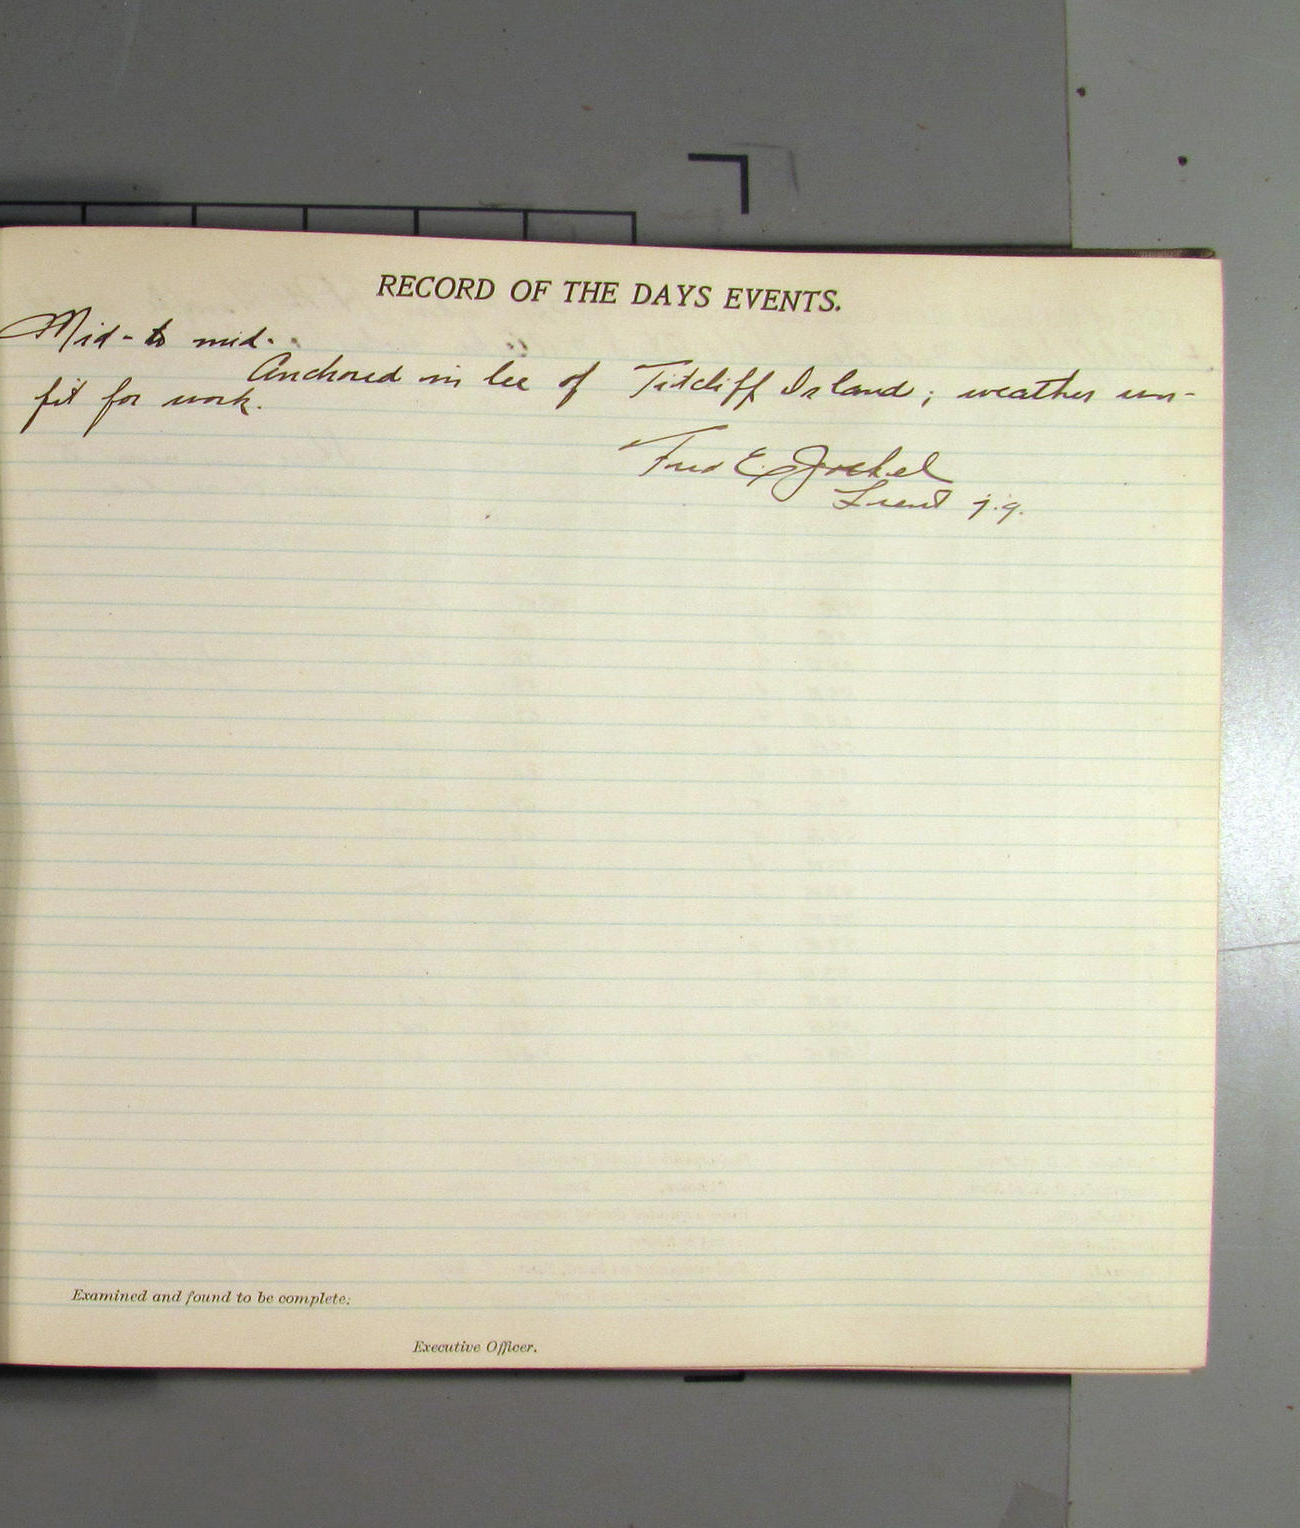 RECORD OF THE DAYS EVENTS.
Mid- to mid.
Anchored in lee of Titcliff Island; weather un-
fit for work.
Fred E. Joekel
Lieut j.g.
Examined and found to be complete:
Executive Officer.